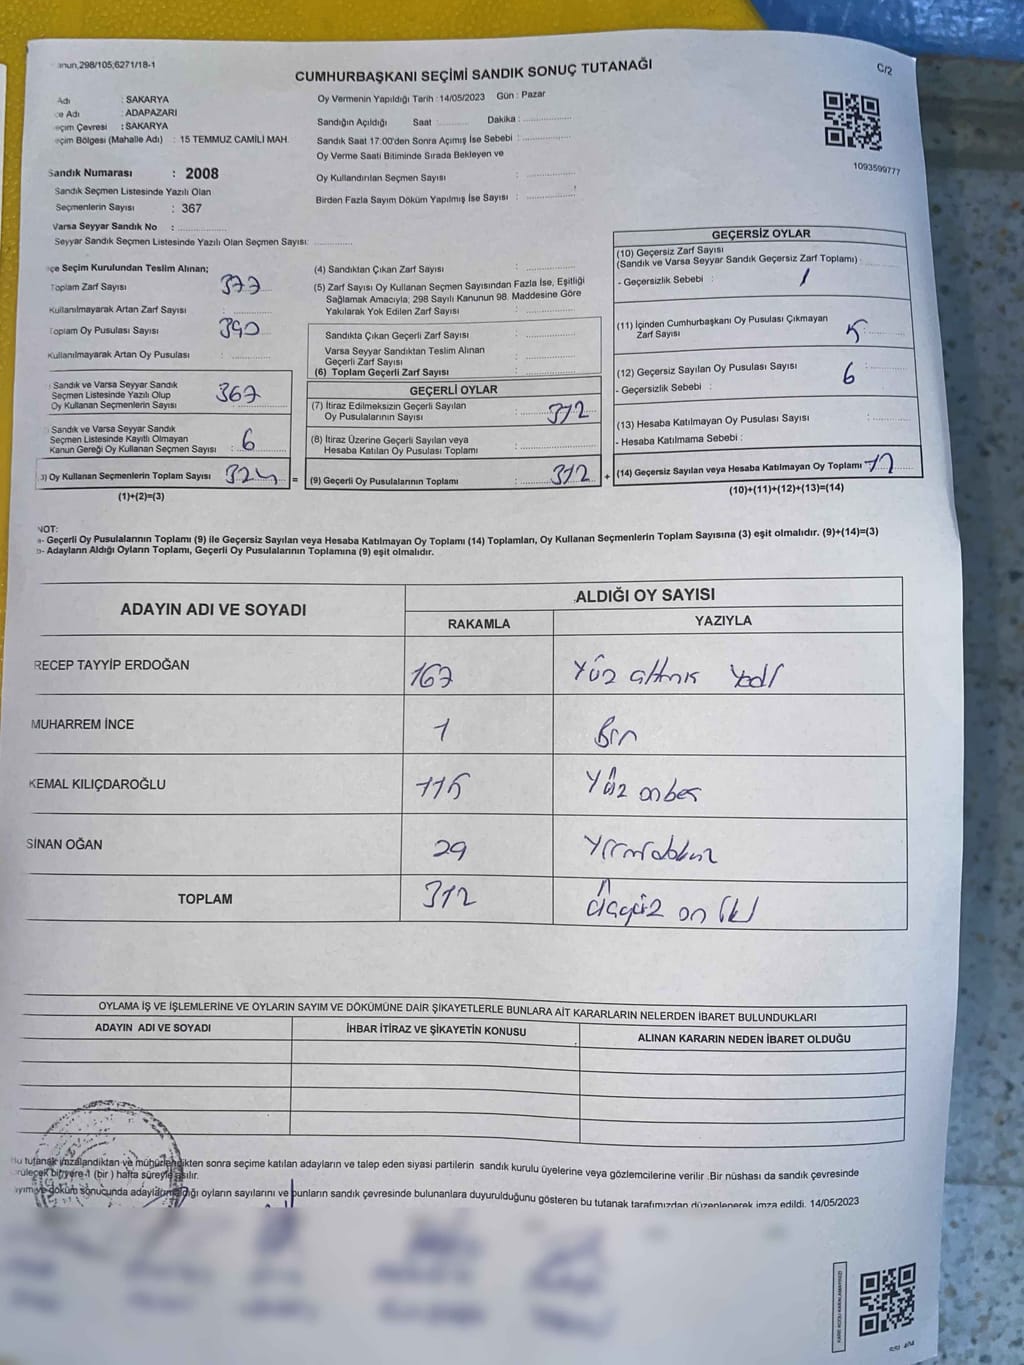 anun,298/105;6271/18-1
CUMHURBAŞKANI SEÇİMİ SANDIK SONUÇ TUTANAĞI
C/2
Adı : SAKARYA
çe Adı : ADAPAZARI
eçim Çevresi : SAKARYA
eçim Bölgesi (Mahalle Adı) : 15 TEMMUZ CAMİLİ MAH.
Oy Vermenin Yapıldığı Tarih : 14/05/2023 Gün : Pazar
Sandığın Açıldığı Saat : Dakika :
Sandık Saat 17:00'den Sonra Açımış İse Sebebi :
Oy Verme Saati Bitiminde Sırada Bekleyen ve
Oy Kullandırılan Seçmen Sayısı :
Birden Fazla Sayım Döküm Yapılmış İse Sayısı :
1093599777
Sandık Numarası : 2008
Sandık Seçmen Listesinde Yazılı Olan
Seçmenlerin Sayısı : 367
Varsa Seyyar Sandık No :
Seyyar Sandık Seçmen Listesinde Yazılı Olan Seçmen Sayısı:
çe Seçim Kurulundan Teslim Alınan;
Toplam Zarf Sayısı : 377
Kullanılmayarak Artan Zarf Sayısı :
Toplam Oy Pusulası Sayısı : 390
Kullanılmayarak Artan Oy Pusulası :
Sandık ve Varsa Seyyar Sandık
Seçmen Listesinde Yazılı Olup
Oy Kullanan Seçmenlerin Sayısı 367
Sandık ve Varsa Seyyar Sandık
Seçmen Listesinde Kayıtlı Olmayan
Kanun Gereği Oy Kullanan Seçmen Sayısı : 6
3) Oy Kullanan Seçmenlerin Toplam Sayısı 324 =
(1)+(2)=(3)
(4) Sandıktan Çıkan Zarf Sayısı :
(5) Zarf Sayısı Oy Kullanan Seçmen Sayısından Fazla İse, Eşitliği
Sağlamak Amacıyla; 298 Sayılı Kanunun 98. Maddesine Göre
Yakılarak Yok Edilen Zarf Sayısı :
Sandıkta Çıkan Geçerli Zarf Sayısı :
Varsa Seyyar Sandıktan Teslim Alınan
Geçerli Zarf Sayısı :
(6) Toplam Geçerli Zarf Sayısı :
GEÇERLİ OYLAR
(7) İtiraz Edilmeksizin Geçerli Sayılan
Oy Pusulalarının Sayısı : 312
(8) İtiraz Üzerine Geçerli Sayılan veya
Hesaba Katılan Oy Pusulası Toplamı :
(9) Geçerli Oy Pusulalarının Toplamı : 312 +
GEÇERSİZ OYLAR
(10) Geçersiz Zarf Sayısı
(Sandık ve Varsa Seyyar Sandık Geçersiz Zarf Toplamı) :
- Geçersizlik Sebebi : 1
(11) İçinden Cumhurbaşkanı Oy Pusulası Çıkmayan
Zarf Sayısı 5
(12) Geçersiz Sayılan Oy Pusulası Sayısı 6
- Geçersizlik Sebebi :
(13) Hesaba Katılmayan Oy Pusulası Sayısı :
- Hesaba Katılmama Sebebi :
(14) Geçersiz Sayılan veya Hesaba Katılmayan Oy Toplamı 12
(10)+(11)+(12)+(13)=(14)
NOT:
a- Geçerli Oy Pusulalarının Toplamı (9) ile Geçersiz Sayılan veya Hesaba Katılmayan Oy Toplamı (14) Toplamları, Oy Kullanan Seçmenlerin Toplam Sayısına (3) eşit olmalıdır. (9)+(14)=(3)
b- Adayların Aldığı Oyların Toplamı, Geçerli Oy Pusulalarının Toplamına (9) eşit olmalıdır.
ADAYIN ADI VE SOYADI
ALDIĞI OY SAYISI
RAKAMLA YAZIYLA
RECEP TAYYİP ERDOĞAN 167 Yüz altmış Yedi
MUHARREM İNCE 1 Bir
KEMAL KILIÇDAROĞLU 115 Yüz onbeş
SİNAN OĞAN 29 Yirmidokuz
TOPLAM 312 Üçyüz on iki
OYLAMA İŞ VE İŞLEMLERİNE VE OYLARIN SAYIM VE DÖKÜMÜNE DAİR ŞİKAYETLERLE BUNLARA AİT KARARLARIN NELERDEN İBARET BULUNDUKLARI
ADAYIN ADI VE SOYADI İHBAR İTİRAZ VE ŞİKAYETİN KONUSU ALINAN KARARIN NEDEN İBARET OLDUĞU
Bu tutanak imzalandıktan ve mühürlendikten sonra seçime katılan adayların ve talep eden siyasi partilerin sandık kurulu üyelerine veya gözlemcilerine verilir .Bir nüshası da sandık çevresinde
görülecek bir yere 1 (bir ) hafta süreyle asılır.
ayım ve döküm sonucunda adayların aldığı oyların sayılarını ve bunların sandık çevresinde bulunanlara duyurulduğunu gösteren bu tutanak tarafımızdan düzenlenerek imza edildi. 14/05/2023